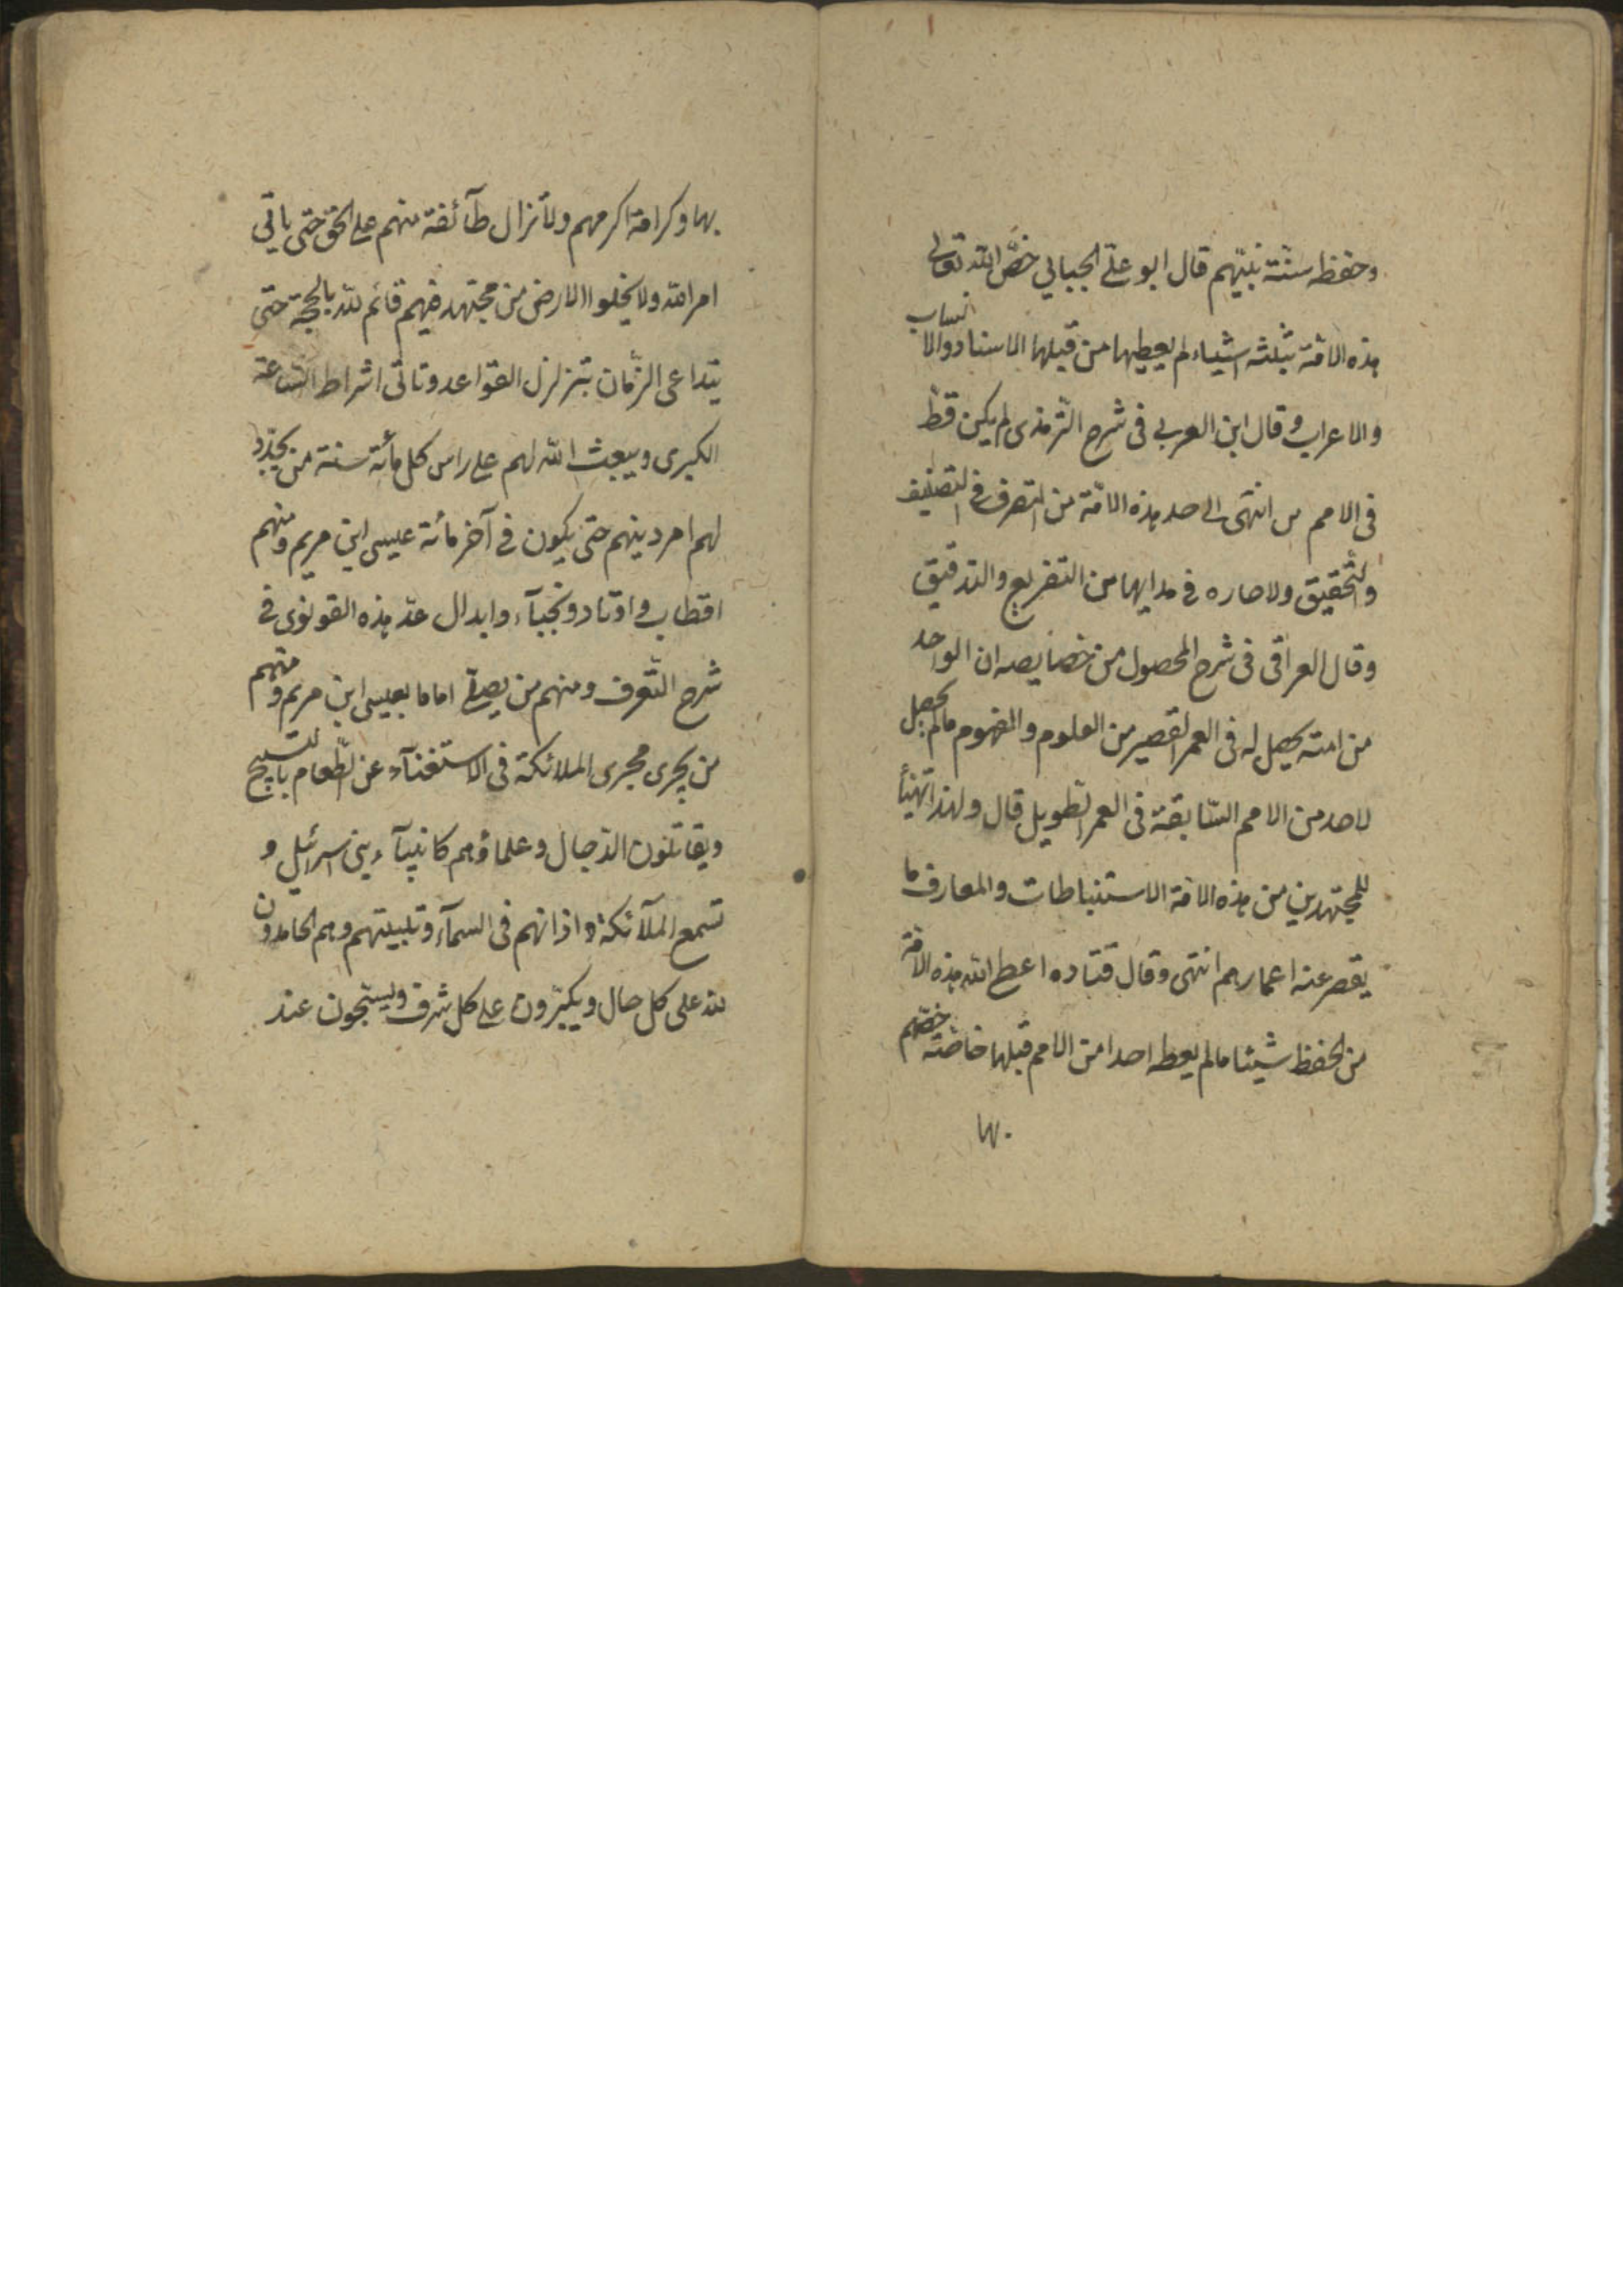 وحفظ سنة نبيّهم قال ابو علىّ الجبائي خصَّ الله تعالى
هذه الامّة بثلثه اشياء لم يعطيها من قبلها الاسناد والانساب
والاعراب وقال ابن العربي فى شرح الترمذى لم يكن قط
فى الامم من انتهى الى حد هذه الامّة من التصرف فى التصنيف
والتحقيق ولا جاراه فى مداها من التفريع والتدقيق
وقال العراقى فى شرح المحصول من خصايصه ان الواحد
من امته يحصل له فى العمر القصير من العلوم والفهوم مالم يحصل
لاحد من الامم السّابقة فى العمر الطويل قال ولهذا تهيّأ
للمجتهدين من هذه الامّة الاستنباطات والمعارف ما
يقصر عنه اعمارهم انتهى وقال قتاده اعطى الله هذه الامّة
من الحفظ شيئا مالم يعطه احدا من الامم قبلها خاصّة خصّهم
بها
بها وكرامة اكرمهم ولا تزال طآئفة منهم على الحق حتى ياتى
امر الله ولا يخلوا الارض من مجتهد فيهم قائم لله بالحجة حتى
يتداعى الزّمان بتزلزل القواعد وتاتى اشراط السّاعة
الكبرى ويبعث الله لهم على راس كل مأئة سنة من يجدّد
لهم امر دينهم حتى يكون فى آخر مائة عيسى ابن مريم ومنهم
اقطاب واوتاد ونجبآء وابدال عدّ هذه القونوى فى
شرح التّعرف ومنهم من يصلّى اماما بعيسى ابن مريم ومنهم
من يجرى مجرى الملائكة فى الاستغنآء عن الطّعام بالتسبيح
ويقاتلون الدّجال وعلماؤهم كانبيآء بنى اسرائيل و
تسمع الملآئكة اذانهم فى السمآء وتلبيتهم وهم الحامدون
لله على كل حال ويكبّرون على كل شرف ويسبّحون عند